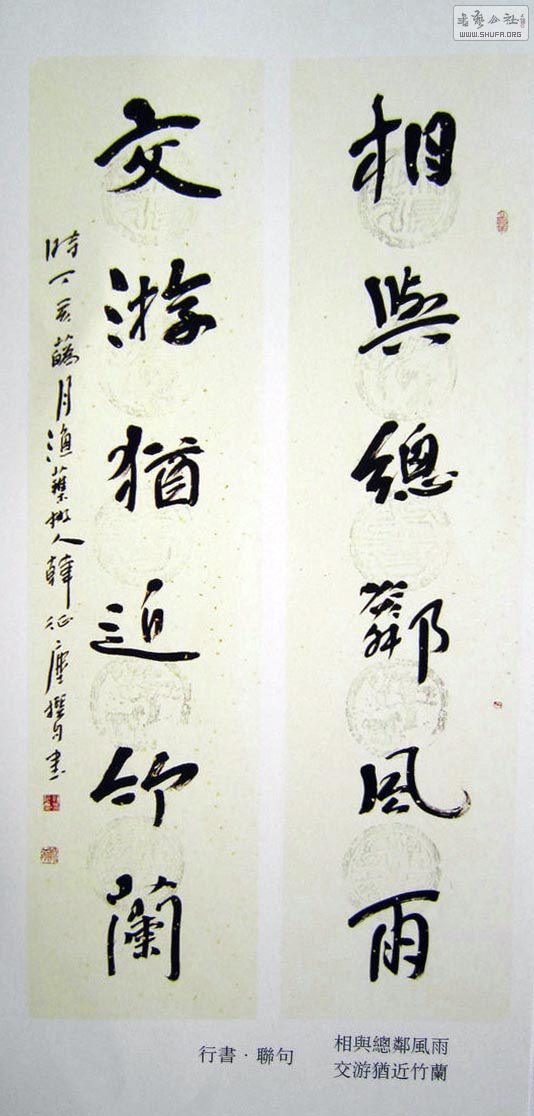 書藝公社
WWW.SHUFA.ORG
相與總鄰風雨
交游猶近竹蘭
時丁亥蘤月漁葉樵人韓征塵撰句書
行書·聯句
相與總鄰風雨
交游猶近竹蘭